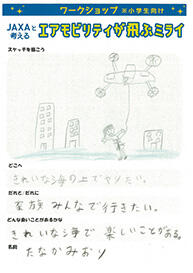 ワークショップ ※小学生向け
JAXAと考える エアモビリティが飛ぶミライ
スケッチを描こう
どこへ
きれいな海の上でやりたい。
だれと/だれに
家族みんなで行きたい。
どんな良いことがあるかな
きれいな海で楽しいことがある。
名前
たなかみおり